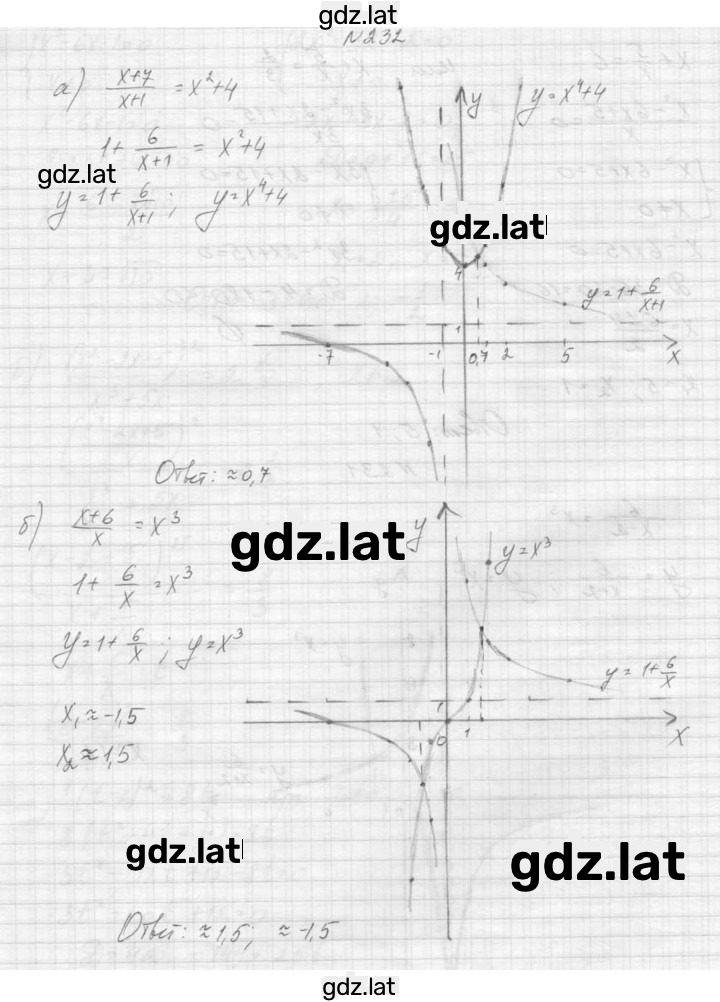 gdz.lat
N 232
а) (x+7)/(x+1) = x²+4
1 + 6/(x+1) = x²+4
gdz.lat
y = 1 + 6/(x+1) ; y = x⁴+4
y
y = x⁴+4
gdz.lat
4
y = 1 + 6/(x+1)
1
-7 -1 0,7 2 5 x
Ответ: ≈ 0,7
б) (x+6)/x = x³
gdz.lat
y
y = x³
1 + 6/x = x³
y = 1 + 6/x ; y = x³
y = 1 + 6/x
x₁ ≈ -1,5
1
0 1 x
x₂ ≈ 1,5
gdz.lat
gdz.lat
Ответ: ≈ 1,5; ≈ -1,5
gdz.lat